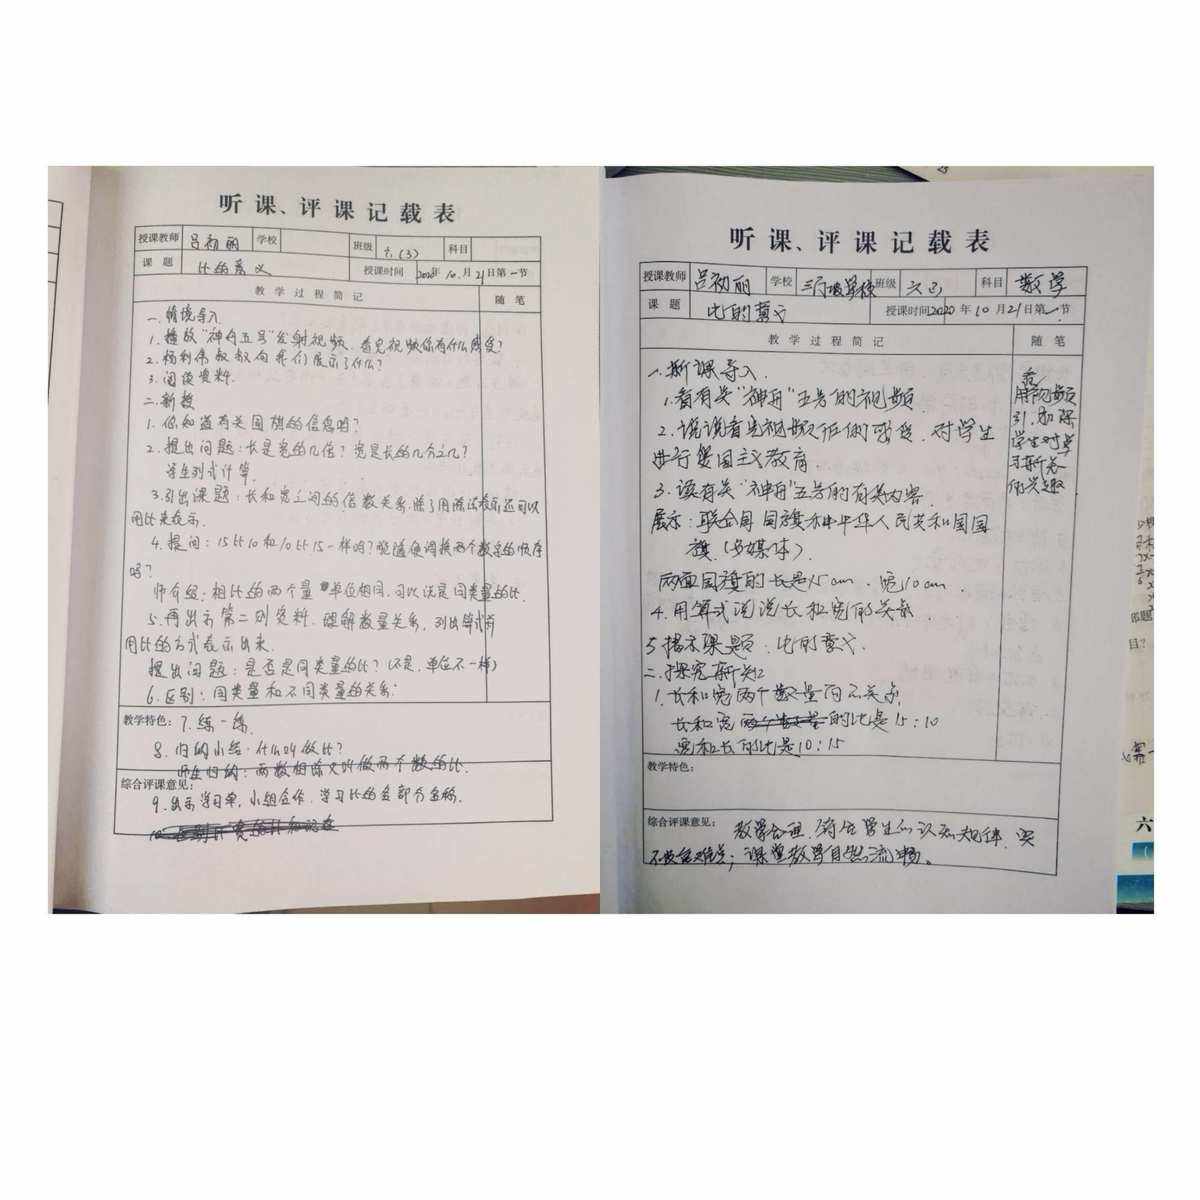 听课、评课记载表
授课教师 吕初丽 学校 班级 六(3) 科目
课题 比的意义 授课时间 2020年10月21日第一节
教学过程简记 随笔
一.情境导入
1.播放"神舟五号"发射视频.看完视频你有什么感受?
2.杨利伟叔叔向我们展示了什么?
3.阅读资料.
二.新授
1.你知道有关国旗的信息吗?
2.提出问题:长是宽的几倍?宽是长的几分之几?
学生列式计算.
3.引出课题:长和宽之间的倍数关系.除了用除法表示还可以
用比来表示.
4.提问:15比10和10比15一样吗?能随便调换两个数字的顺序
吗?
师介绍:相比的两个量单位相同.可以说是同类量的比.
5.再出示第二则资料.理解数量关系.列出算式并
用比的方式表示出来.
提出问题:是否是同类量的比?(不是,单位不一样)
6.区别:同类量和不同类量的关系.
教学特色:7.练一练.
8.归纳小结:什么叫做比?
师生归纳:两数相除又叫做两个数的比.
综合评课意见:
9.出示学习单,小组合作.学习比的各部分名称.
听课、评课记载表
授课教师 吕初丽 学校 三门坡学校 班级 六(3) 科目 数学
课题 比的意义 授课时间2020年10月21日第一节
教学过程简记 随笔
一.新课导入.
1.看有关"神舟"五号的视频.
2.说说看完视频后的感受.对学生
进行爱国主义教育
3.读有关"神舟"五号的有关内容.
展示:联合国国旗和中华人民共和国国
旗.(多媒体).
两面国旗的长是15cm.宽10cm.
4.用算式说说长和宽的关系
5.揭示课题:比的意义.
二.探究新知
1.长和宽两个数量的关系
长和宽的比是15:10
宽和长的比是10:15
看
用视频
引.加强
学生对学
习新知
的兴趣
教学特色:
综合评课意见: 教学合理.符合学生的认知规律.突
不破重难点;课堂教学自然流畅。
六